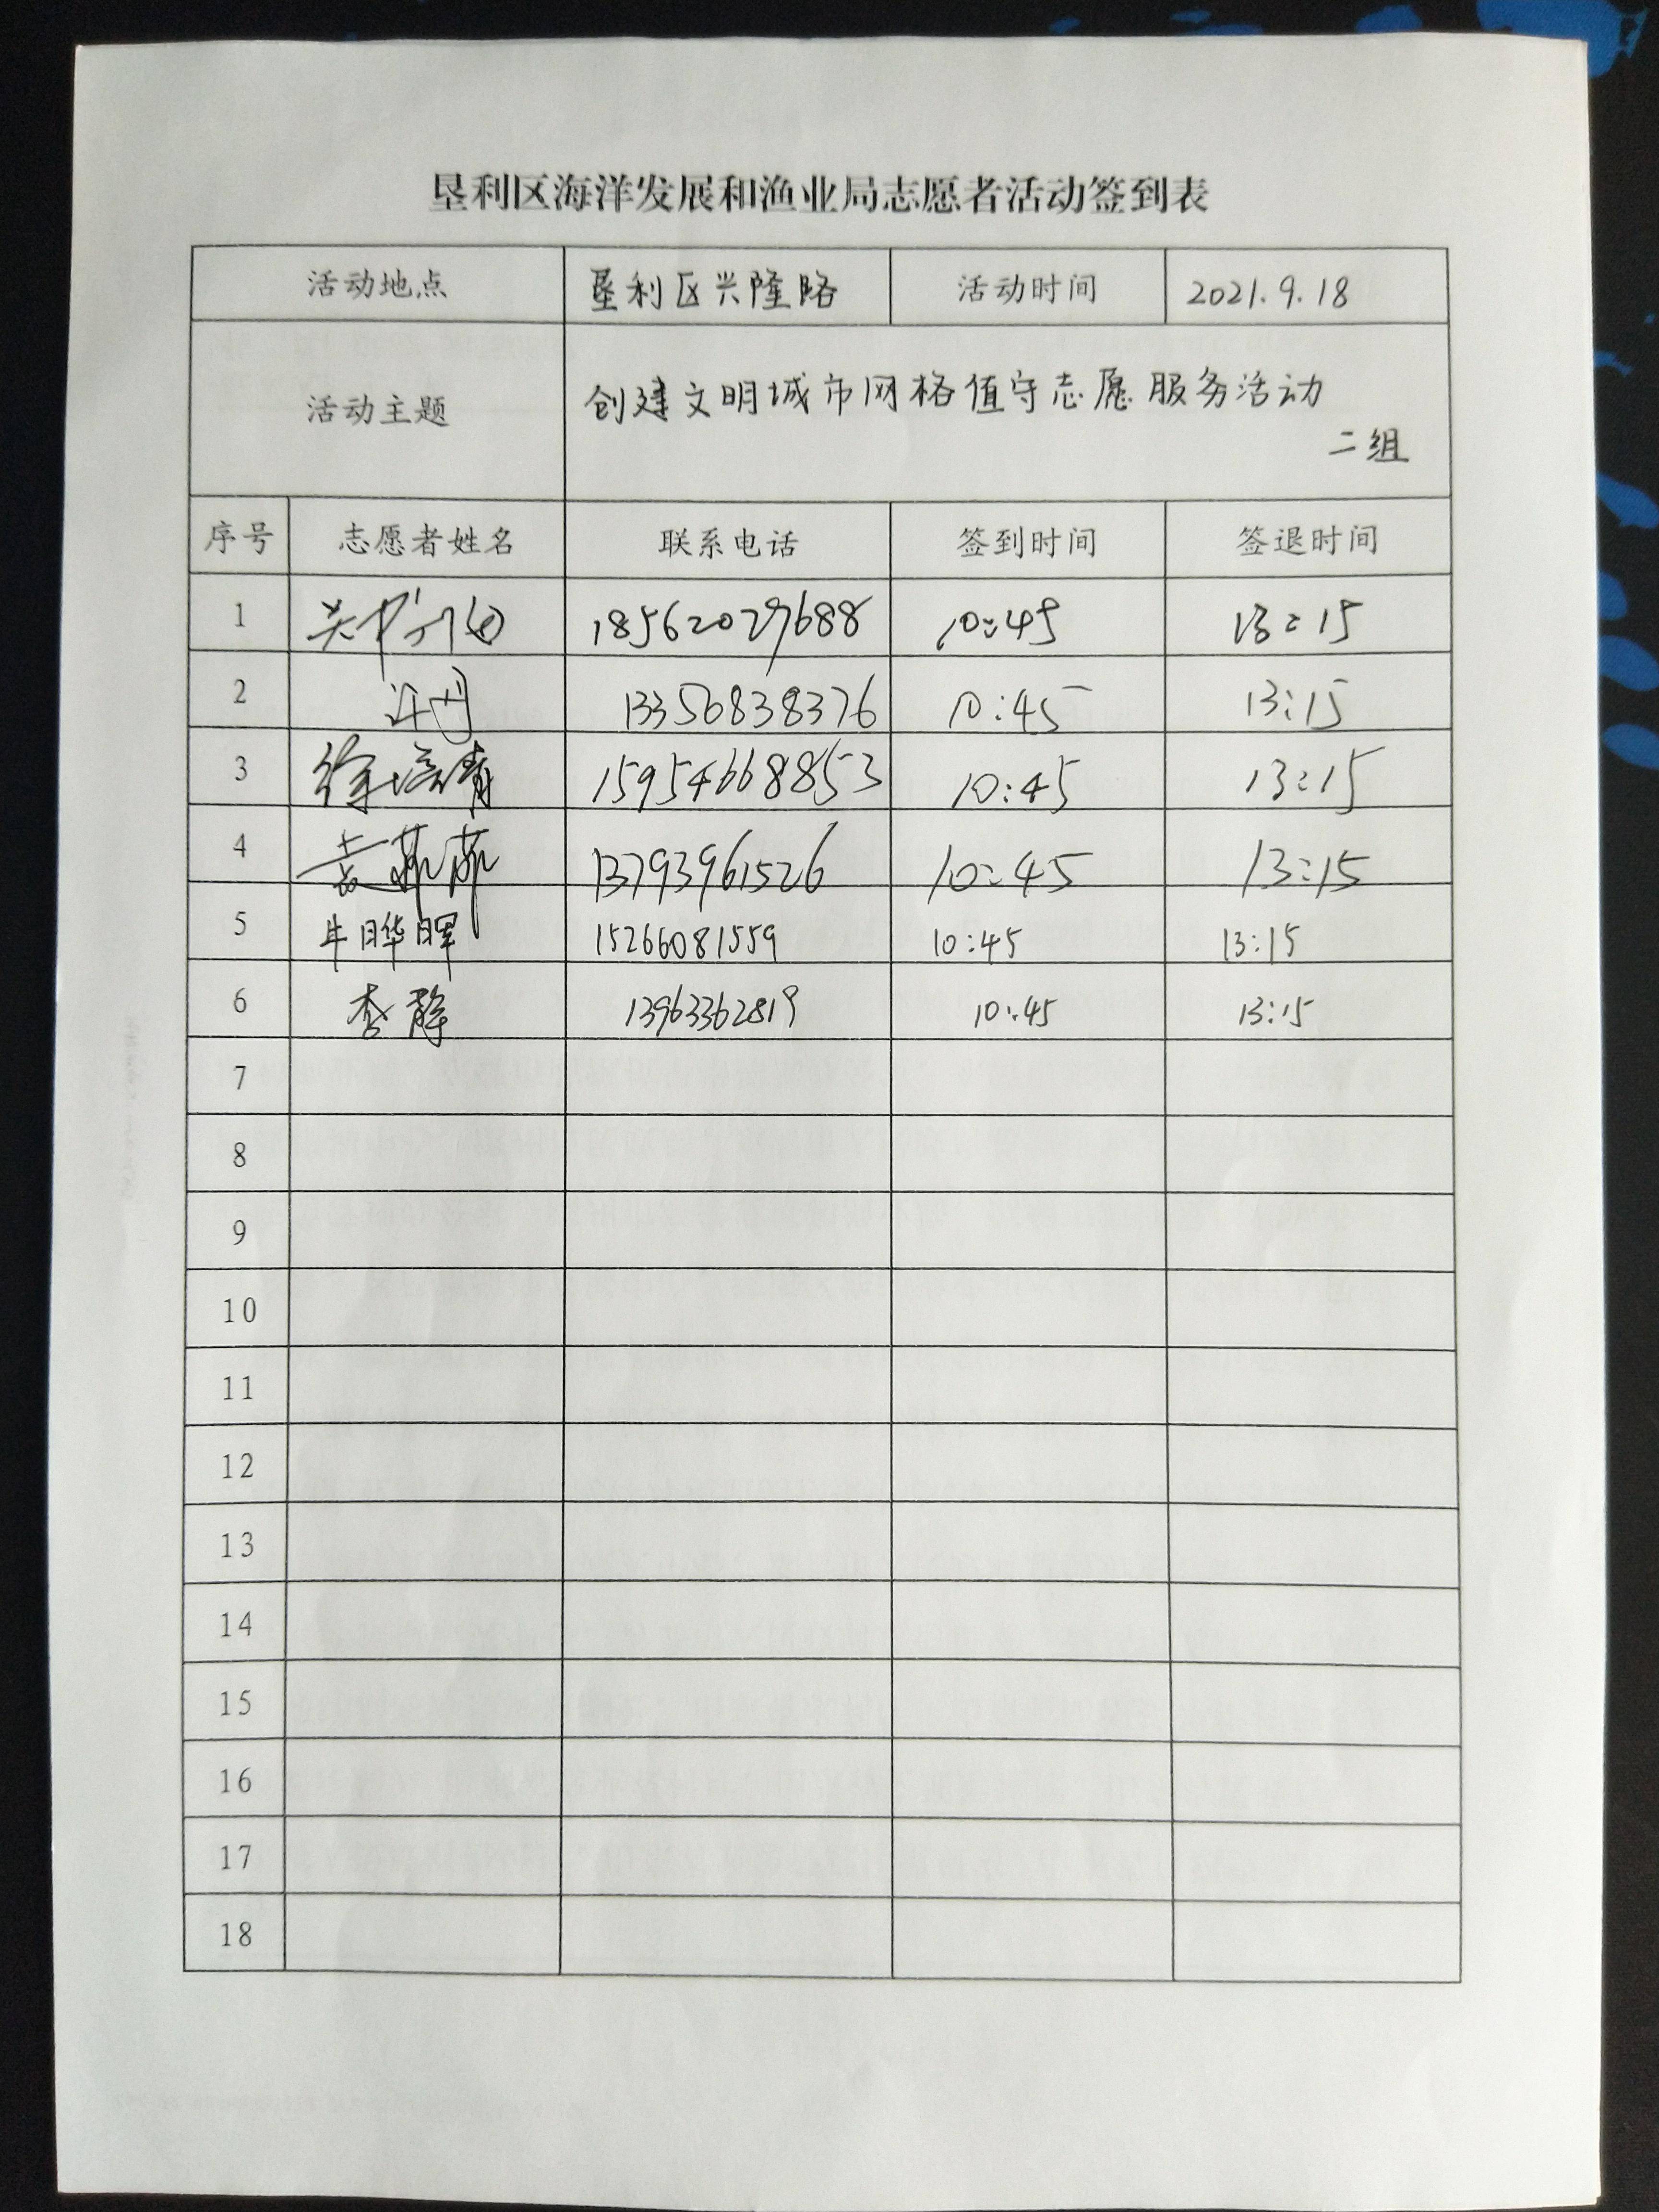 垦利区海洋发展和渔业局志愿者活动签到表
活动地点 垦利区兴隆路 活动时间 2021.9.18
活动主题 创建文明城市网格值守志愿服务活动
二组
序号 志愿者姓名 联系电话 签到时间 签退时间
1 18562029688 10:45 13:15
2 许 13356838376 10:45 13:15
3 徐 清 15954668853 10:45 13:15
4 袁菲菲 13793961526 10:45 13:15
5 牛晔晖 15266081559 10:45 13:15
6 李静 13963362819 10:45 13:15
7
8
9
10
11
12
13
14
15
16
17
18